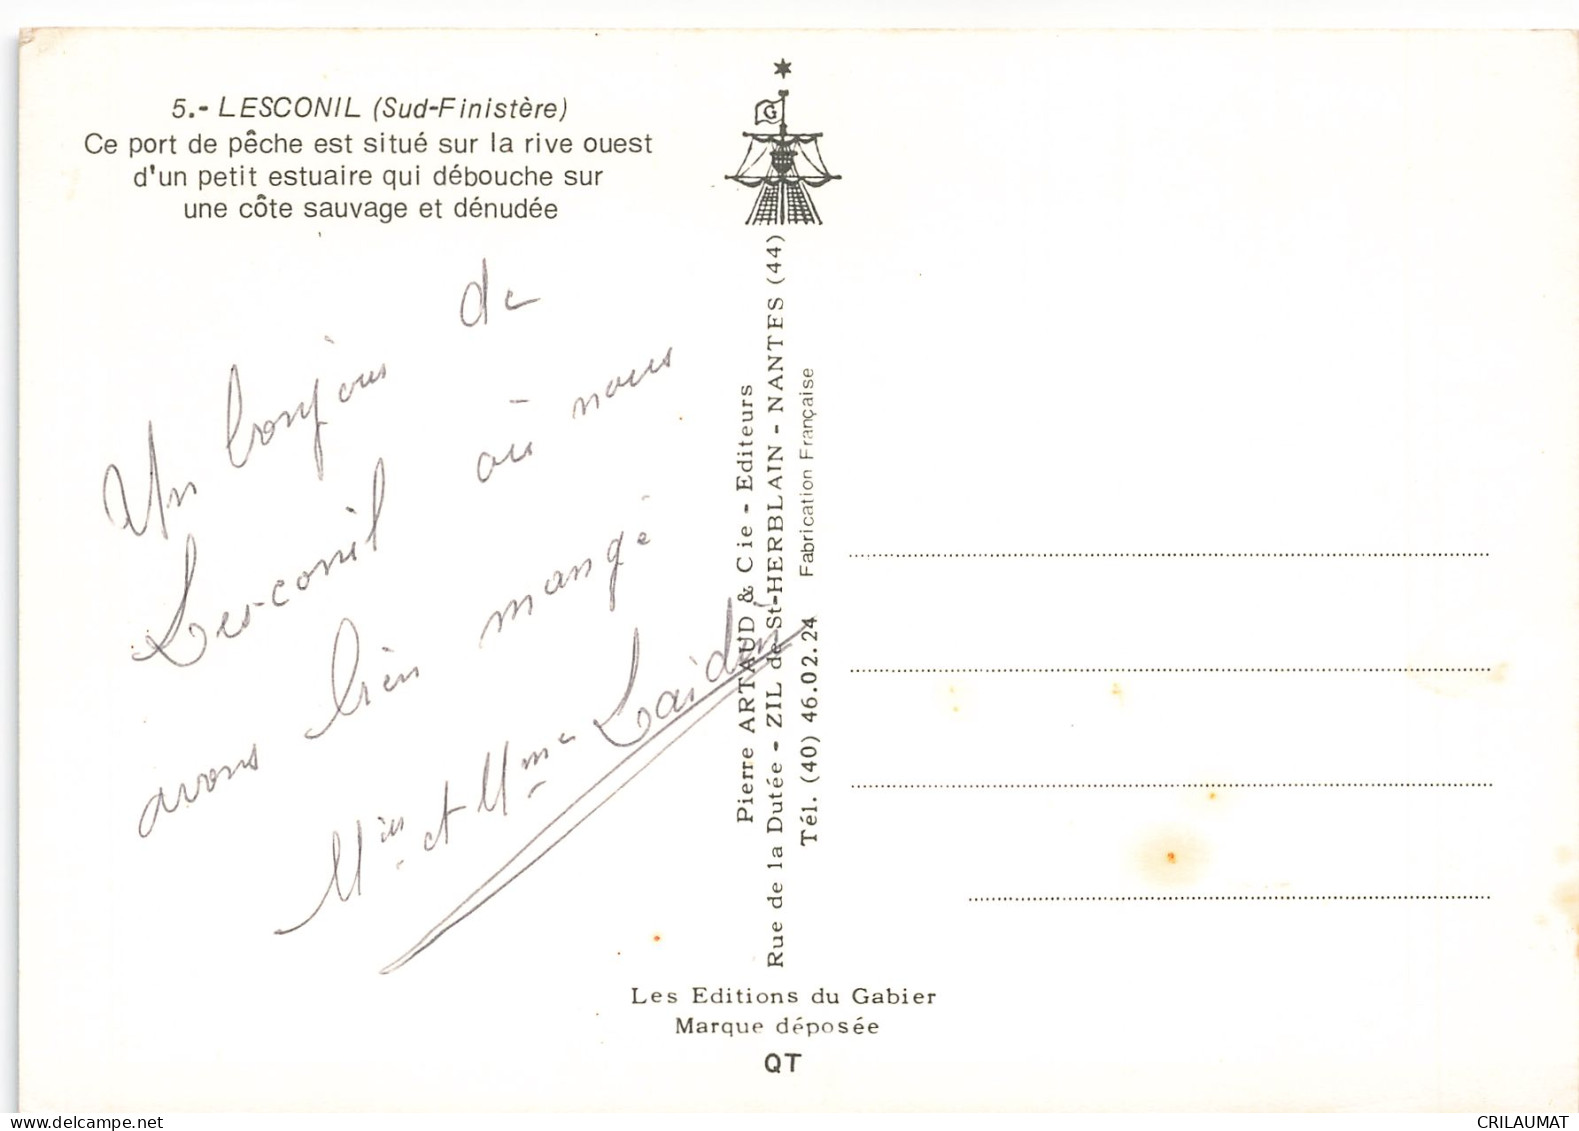 5.- LESCONIL (Sud-Finistère)
Ce port de pêche est situé sur la rive ouest
d'un petit estuaire qui débouche sur
une côte sauvage et dénudée
G
Un bonjour de
Lesconil où nous
avons bien mangé
et Mme
Pierre ARTAUD & Cie - Editeurs
Rue de la Dutée - ZIL de St-HERBLAIN - NANTES (44)
Tél. (40) 46.02.24 Fabrication Française
Les Editions du Gabier
Marque déposée
QT
CRILAUMAT